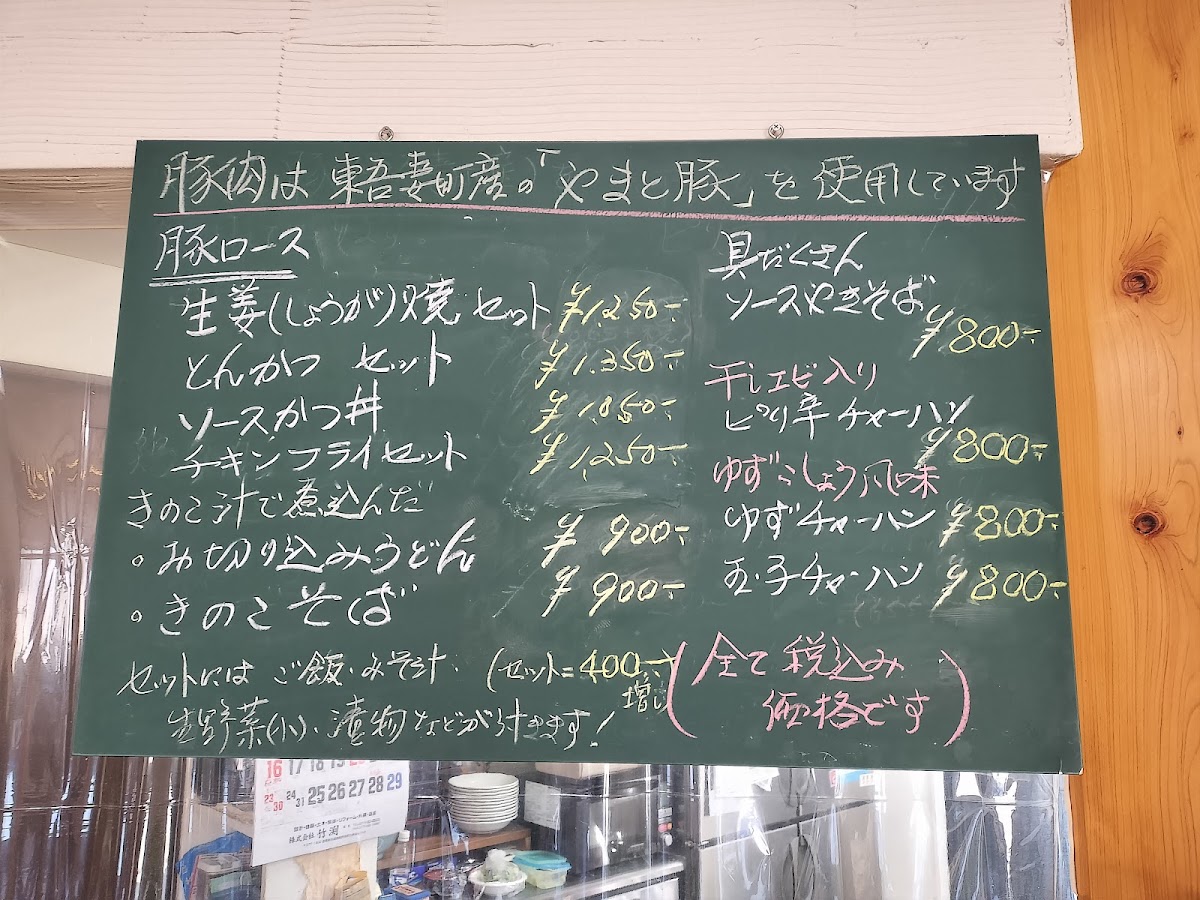 豚肉は 東吾妻町産の「やまと豚」を使用しています
豚ロース
生姜(しょうが)焼 セット ¥1,250-
とんかつ セット ¥1,350-
ソースかつ丼 ¥1,050-
チキンフライセット ¥1,250-
きのこ汁で煮込んだ
。お切り込みうどん ¥900-
。きのこそば ¥900-
セットには ご飯・みそ汁・ (セット=400-増し)
生野菜(小)、漬物などが付きます!
具だくさん
ソースやきそば
¥800-
干しエビ入り
ピリ辛チャーハン
¥800-
ゆずこしょう風味
ゆずチャーハン ¥800-
玉子チャーハン ¥800-
(全て税込み
価格です)
16 17 18 19
23/30 24/31 25 26 27 28 29
株式会社 竹渕